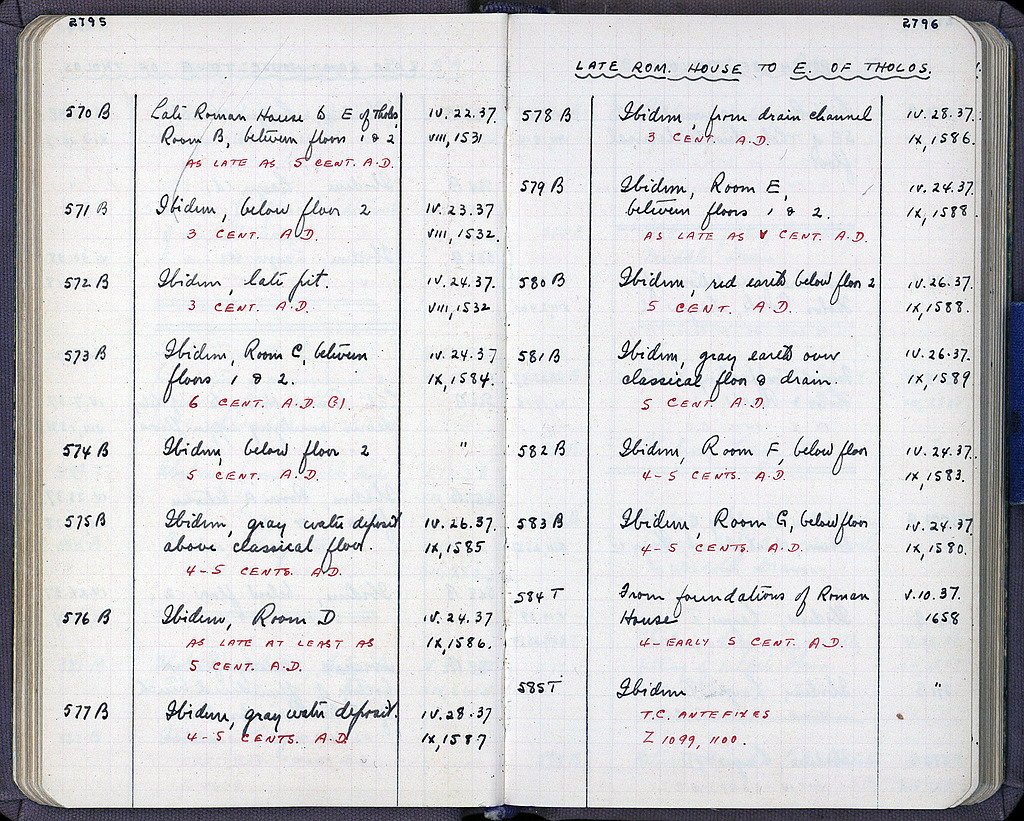 2795
570 B Late Roman House to E of Tholos, IV.22.37
Room B, between floors 1 & 2 VIII, 1531
AS LATE AS 5 CENT. A.D.
571 B Ibidem, below floor 2 IV.23.37
3 CENT. A.D. VIII, 1532.
572 B Ibidem, late pit. IV.24.37.
3 CENT. A.D. VIII, 1532
573 B Ibidem, Room C, between IV.24.37
floors 1 & 2. IX, 1584.
6 CENT. A.D. B1.
574 B Ibidem, below floor 2 "
5 CENT. A.D.
575 B Ibidem, gray water deposit IV.26.37.
above classical floor. IX, 1585
4-5 CENTS. A.D.
576 B Ibidem, Room D IV.24.37
AS LATE AT LEAST AS IX, 1586.
5 CENT. A.D.
577 B Ibidem, gray water deposit. IV.28.37
4-5 CENTS. A.D. IX, 1587
2796
LATE ROM. HOUSE TO E. OF THOLOS.
578 B Ibidem, from drain channel IV.28.37.
3 CENT. A.D. IX, 1586.
579 B Ibidem, Room E, IV.24.37.
between floors 1 & 2. IX, 1588
AS LATE AS V CENT. A.D.
580 B Ibidem, red earth below floor 2 IV.26.37.
5 CENT. A.D. IX, 1588.
581 B Ibidem, gray earth over IV.26.37.
classical floor & drain. IX, 1589
5 CENT. A.D.
582 B Ibidem, Room F, below floor IV.24.37.
4-5 CENTS. A.D. IX, 1583.
583 B Ibidem, Room G, below floor IV.24.37
4-5 CENTS. A.D. IX, 1580.
584 T From foundations of Roman V.10.37.
House 1658
4-EARLY 5 CENT. A.D.
585 T Ibidem "
T.C. ANTEFIXES
Z 1099, 1100.